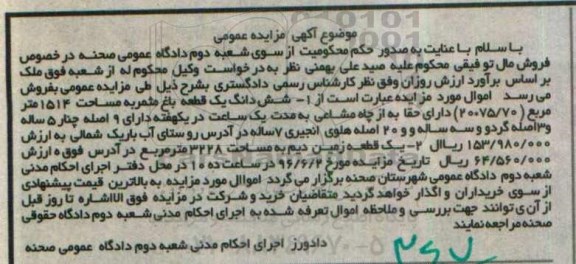 موضوع آگهی مزایده عمومی
با سلام با عنایت به صدور حکم محکومیت از سوی شعبه دوم دادگاه عمومی صحنه در خصوص
فروش مال توقیفی محکوم علیه صید علی بهمنی نظر به درخواست وکیل محکوم له از شعبه فوق ملک
بر اساس برآورد ارزش روزان وفق نظر کارشناس رسمی دادگستری بشرح ذیل طی مزایده عمومی بفروش
می رسد اموال مورد مزایده عبارت است از ۱- شش دانگ یک قطعه باغ مثمربه مساحت ۱۵۱۴ متر
مربع (۲۰۰۷۵/۷۰) دارای حقا به از چاه مشاعی به مدت یک ساعت در یکهفته دارای ۹ اصله چنار ۵ ساله
و۳اصله گردو و سه ساله و ۲۰ اصله هلوی انجیری ۷ساله در آدرس روستای آب باریک شمالی به ارزش
۱۵۳/۹۸۰/۰۰۰ ریاال ۲- یک قطعه زمین دیم به مساحت ۳۲۲۸ مترمربع در آدرس فوق ه ارزش
۶۴/۵۶۰/۰۰۰ ریال تاریخ مزایده مورخ ۹۶/۶/۲ در ساعت ده تا ۱۱ در محل دفتر اجرای احکام مدنی
شعبه دوم دادگاه عمومی شهرستان صحنه برگزار می گردد امواال مورد مزایده به بالاترین قیمت پیشنهادی
از سوی خریداران و اگذار خواهد گردید متقاضیان خرید و شرکت در مزایده فوق الااشاره تا روز قبل
از آن ی توانند جهت بررسی و ملاحظه اموال تعرفه شده به اجرای احکام مدنی شعبه دوم دادگاه حقوقی
صحنه مراجعه نمایند
دادورز اجرای احکام مدنی شعبه دوم دادگاه عمومی صحنه